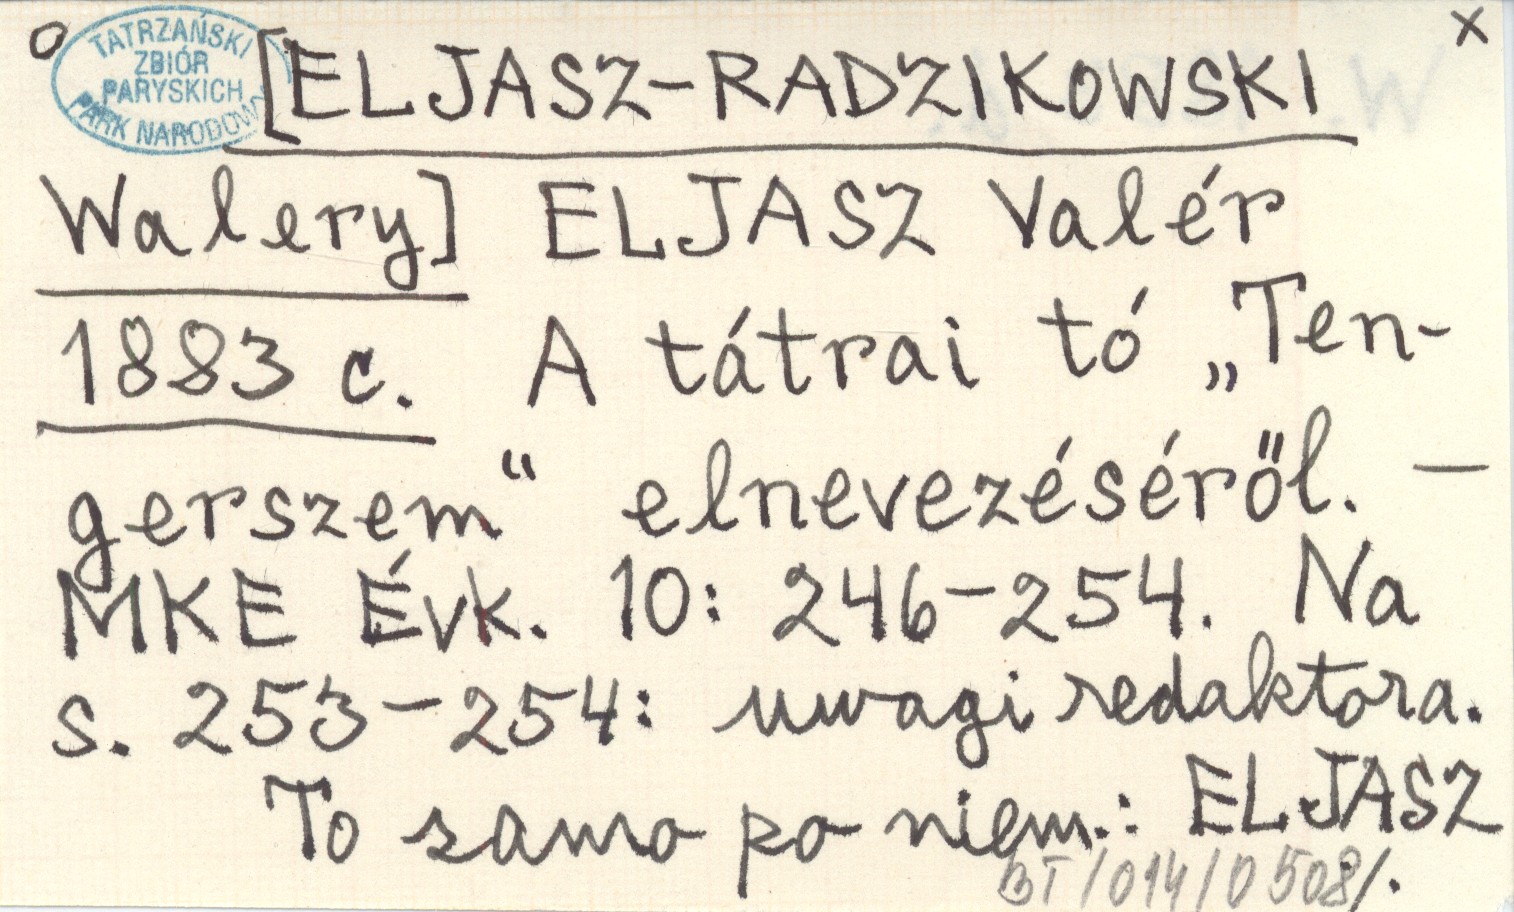 o TATRZAŃSKI x
ZBIÓR
PARYSKICH
PARK NARODOWY
[ELJASZ-RADZIKOWSKI
Walery] ELJASZ Valér
1883 c. A tátrai tó „Ten-
gerszem“ elnevezéséről. —
MKE Évk. 10: 246-254. Na
s. 253-254: uwagi redaktora.
To samo po niem.: ELJASZ
BT/014/0508/.